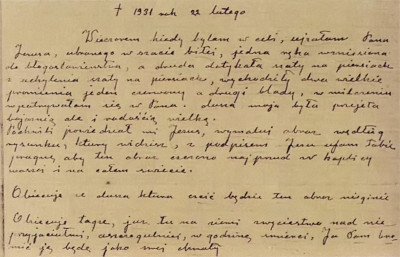 † 1931 rok 22 lutego
Wieczorem kiedy byłam w celi, ujrzałam Pana
Jezusa, ubranego w szacie białej, jedna ręka wzniesiona
do błogosławieństwa, a druga dotykała szaty na piersiach
z uchylenia szaty na piersiach, wychodziły dwa wielkie
promienie jeden czerwony a drugi blady, w milczeniu
wpatrywałam się w Pana. dusza moja była przejęta
bojaźnią ale i radością wielką.
powiedział mi Jezus, wymaluj obraz według
rysunku, który widzisz, z podpisem Jezu ufam Tobie
pragnę, aby ten obraz czczono najprzód w kaplicy
waszej i na całym świecie.
Obiecuję że dusza która czcić będzie ten obraz nie zginie
Obiecuję także, już tu na ziemi zwycięstwo nad nie
przyjaciółmi, a szczególniej, w godzinę śmierci, Ja Sam bro
nić ją będę jako swej chwały